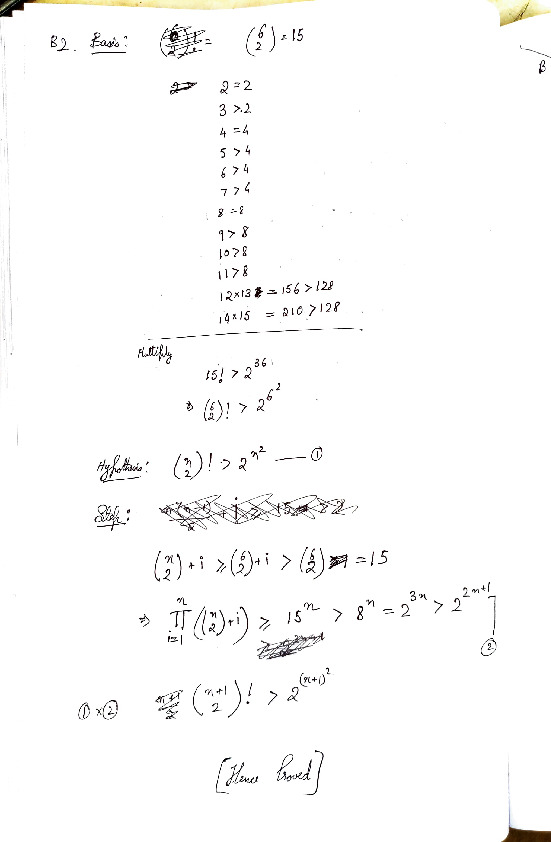 B2. Basis: (6 2) = 15
B
2 = 2
3 > 2
4 = 4
5 > 4
6 > 4
7 > 4
8 = 8
9 > 8
10 > 8
11 > 8
12×13 = 156 > 128
14×15 = 210 > 128
Multiply
15! > 2^36
⇒ (6 2)! > 2^6^2
Hypothesis: (n 2)! > 2^n^2 — ①
Step:
(n 2) + i ≥ (6 2) + i > (6 2) = 15
⇒ ∏_{i=1}^{n} ((n 2) + i) ≥ 15^n > 8^n = 2^{3n} > 2^{2n+1}
②
① × ② (n+1 2)! > 2^{(n+1)^2}
[Hence Proved]